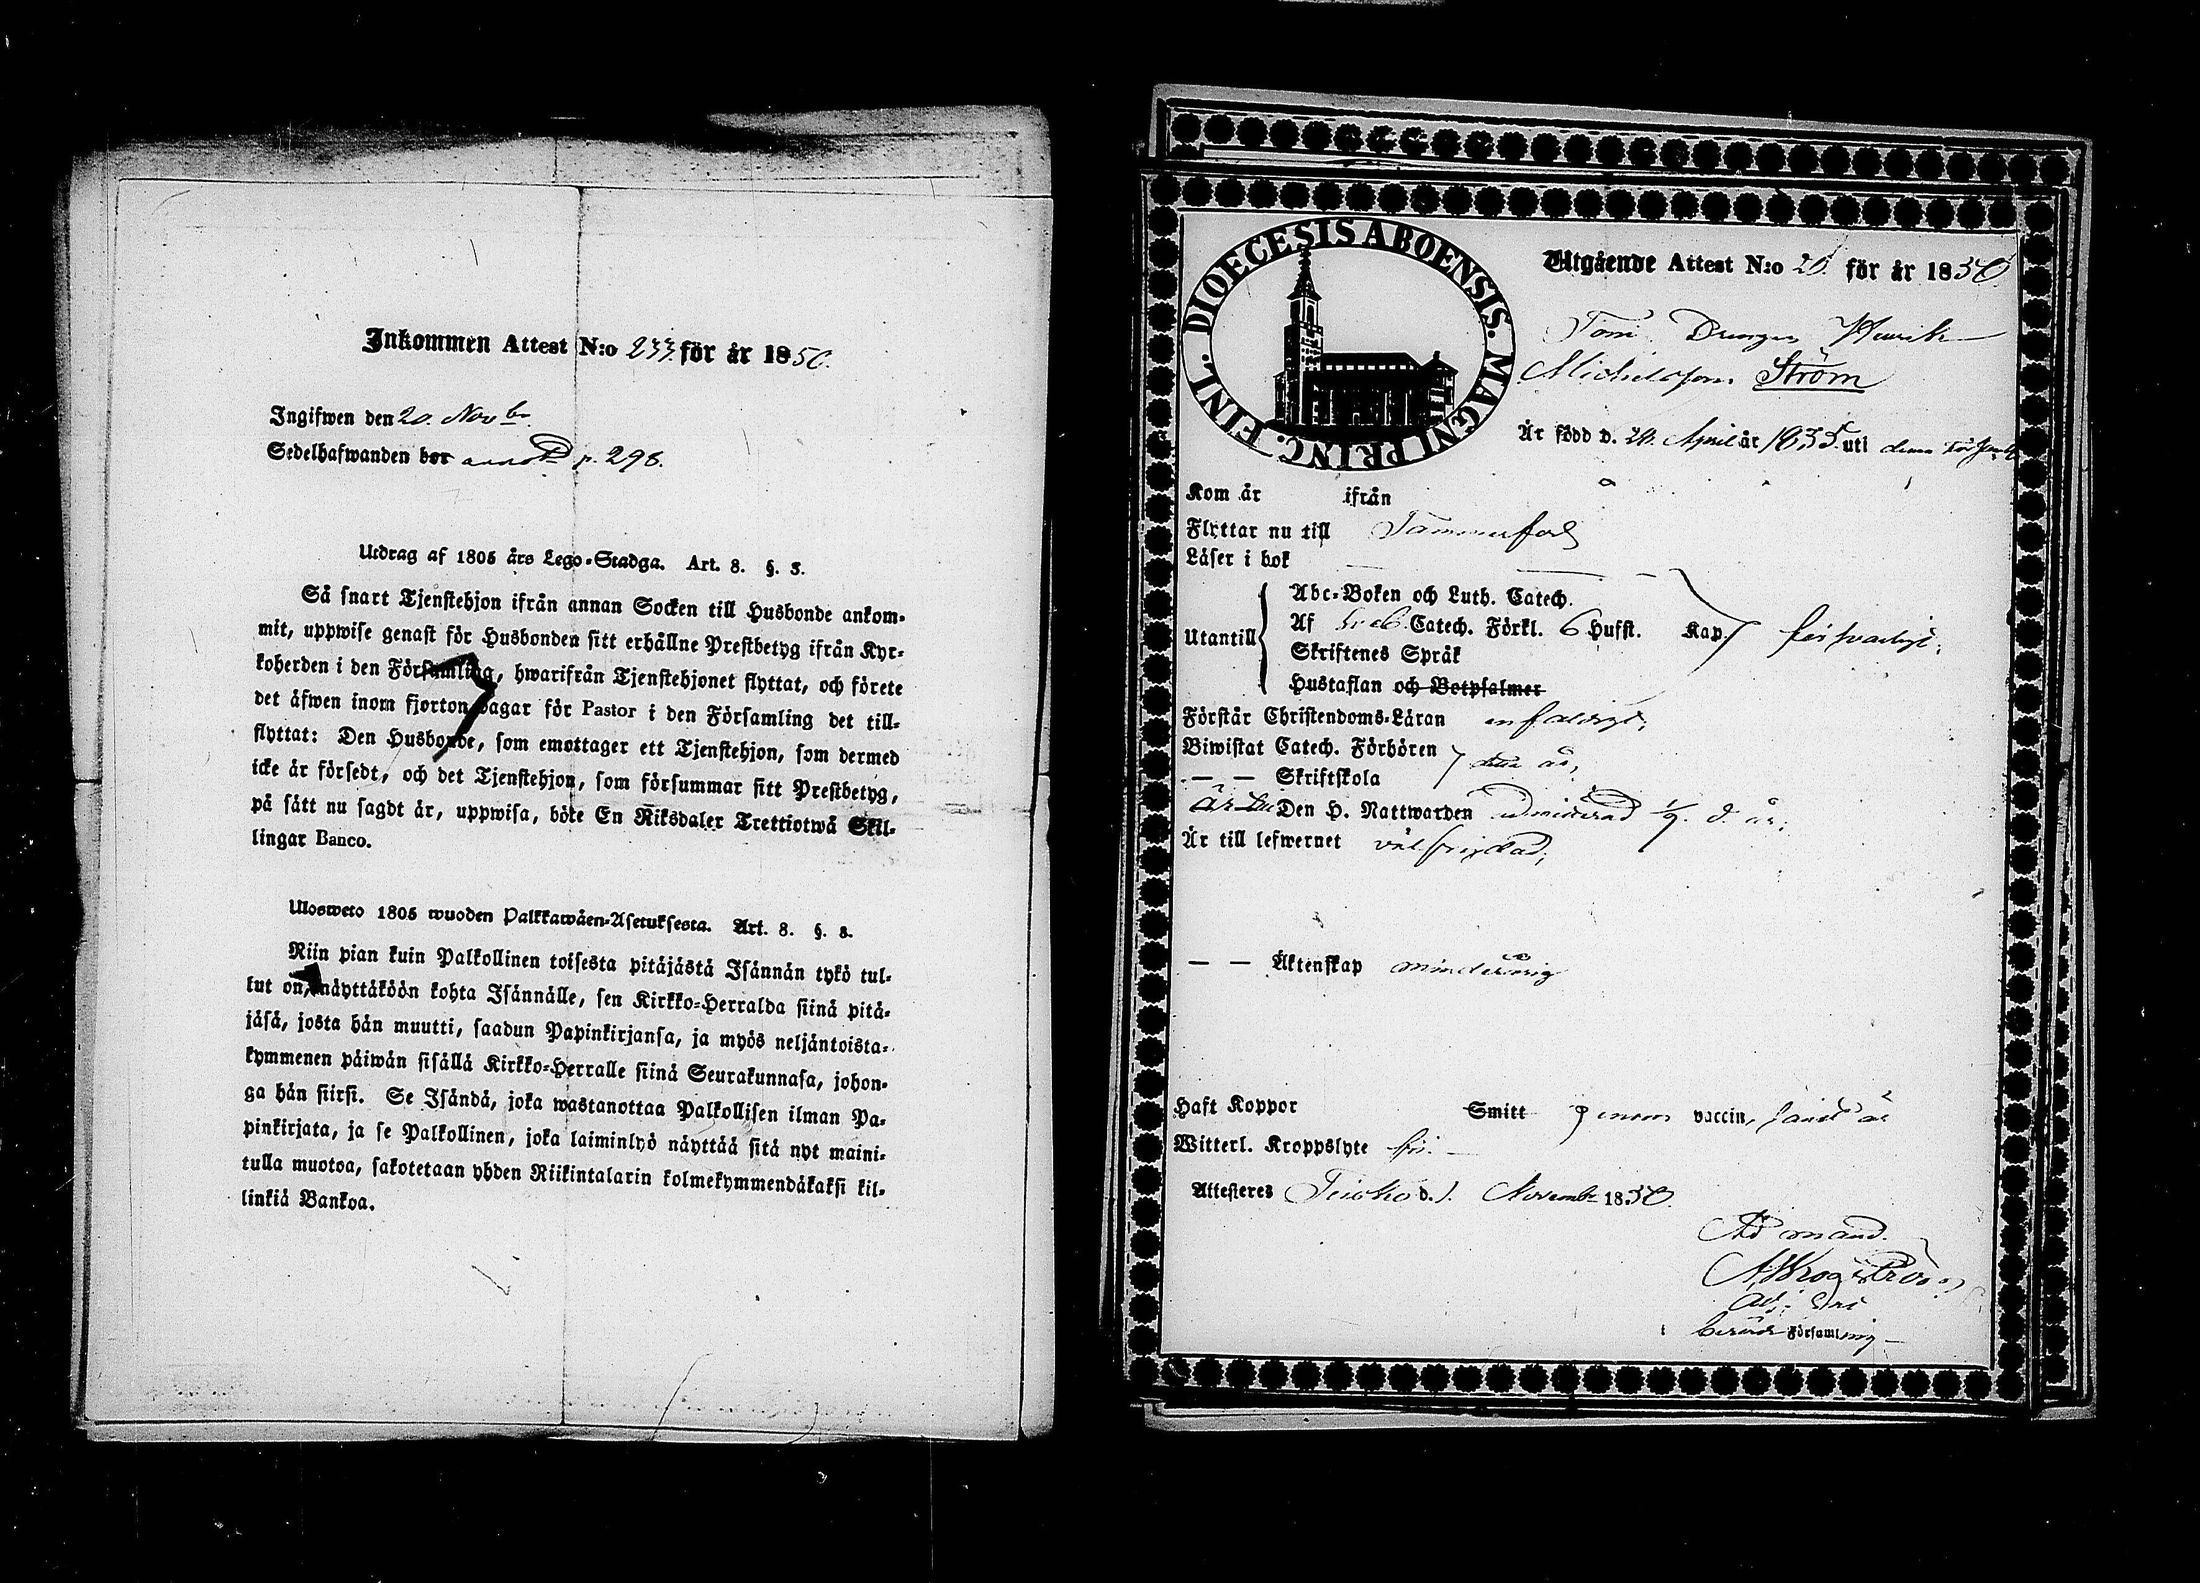 Inkommen Attest N:o 233 för år 1850.
Ingifwen den 20. Novbr.
Sedelhafwanden bor annot p. 298.
Utdrag af 1805 års Lego-Stadga. Art. 8. §. 3.
Så snart Tjenstehjon ifrån annan Socken till Husbonde ankom-
mit, uppwise genast för Husbonden sitt erhållne Prestbetyg ifrån Kyr-
koherden i den Församling, hwarifrån Tjenstehjonet flyttat, och förete
det äfwen inom fjorton dagar för Pastor i den Församling det till-
flyttat: Den Husbonde, som emottager ett Tjenstehjon, som dermed
icke är försedt, och det Tjenstehjon, som försummar sitt Prestbetyg,
på sätt nu sagdt är, uppwisa, böte En Riksdaler Trettiotwå Skil-
lingar Banco.
Ulosweto 1805 wuoden Palkkawäen-Asetuksesta. Art. 8. §. 3.
Niin pian kuin Palkollinen toisesta pitäjästä Isännän tykö tul-
kut on, näyttäköön kohta Isännälle, sen Kirkko-Herralda siinä pitä-
jäsä, josta hän muutti, saadun Papinkirjansa, ja myös neljäntoista-
kymmenen päiwän sisällä Kirkko-Herralle siinä Seurakunnasa, johon-
ga hän siirsi. Se Isändä, joka wastanottaa Palkollisen ilman Pa-
pinkirjata, ja se Palkollinen, joka laiminlyö näyttää sitä nyt maini-
tulla muotoa, sakotetaan yhden Riikintalarin kolmekymmendäkaksi kil-
linkiä Bankoa.
DIOECESIS ABOENSIS. MAGNI PRINC. FINL.
Utgående Attest N:o 20. för år 1850.
Drengen Henrik
Michelsson Ström
Är född d. 20. April år 1835. uti denna Förs.
Kom år ifrån
Flyttar nu till Tammerfors
Läser i bok
Utantill
Abc-Boken och Luth. Catech.
Af Catech. Förkl. 6 Hufst. Kap. försvarligt.
Skriftenes Språk
Hustaflan och Botpsalmer
Förstår Christendoms-Läran enfaldigt.
Biwistat Catech. Förhören
— — Skriftskola detta år,
Den H. Nattwarden admitterad d. år.
Är till lefwernet välfrejdad,
— — Äktenskap minderårig
Haft Koppor Smitt genom vaccin,
Witterl. Kroppslyte fri.
Attesteres Teisko d. 1. November 1850.
Ad mand.
Adj:
berörde Församling